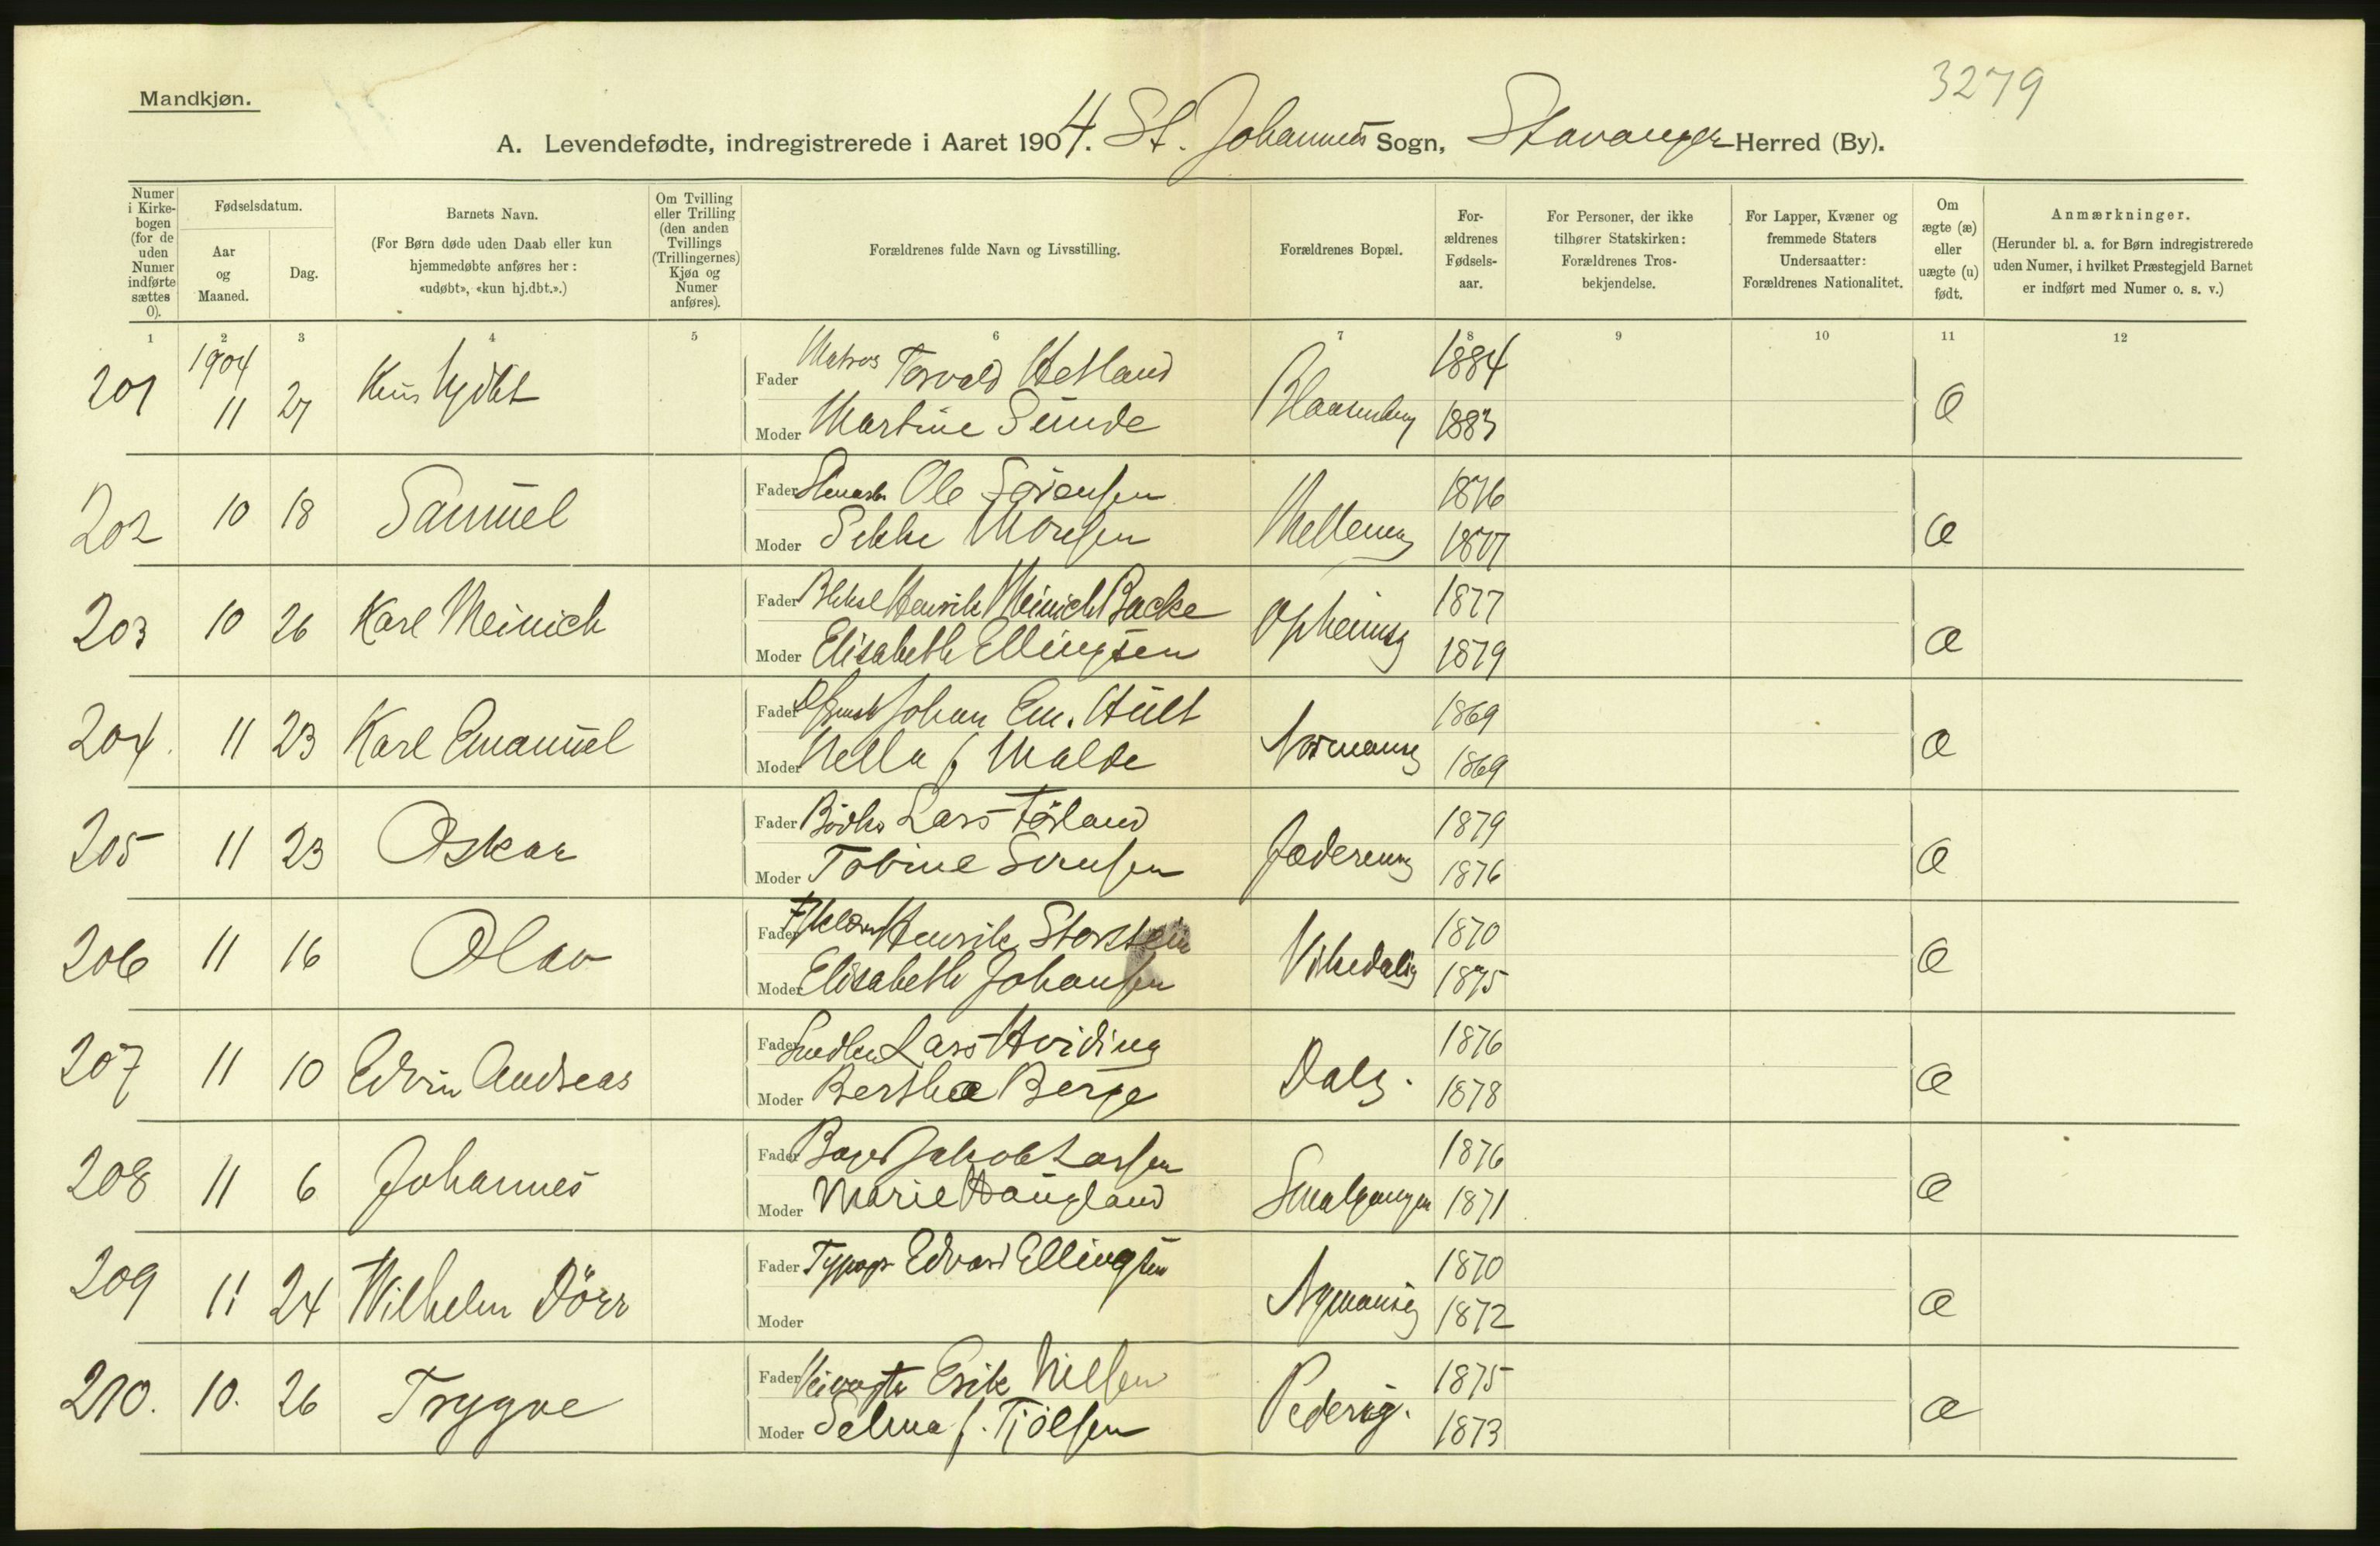 3279
Mandkjøn.
A. Levendefødte, indregistrerede i Aaret 1904. St. Johannes Sogn, Stavanger Herred (By).
Numer i Kirkebogen (for de uden Numer indførte sættes 0).
Fødselsdatum.
Aar og Maaned.
Dag.
Barnets Navn.
(For Børn døde uden Daab eller kun hjemmedøbte anføres her: «udøbt», «kun hj.dbt.».)
Om Tvilling eller Trilling (den anden Tvillings (Trillingernes) Kjøn og Numer anføres).
Forældrenes fulde Navn og Livsstilling.
Forældrenes Bopæl.
Forældrenes Fødselsaar.
For Personer, der ikke tilhører Statskirken: Forældrenes Trosbekjendelse.
For Lapper, Kvæner og fremmede Staters Undersaatter: Forældrenes Nationalitet.
Om ægte (æ) eller uægte (u) født.
Anmærkninger.
(Herunder bl. a. for Børn indregistrerede uden Numer, i hvilket Præstegjeld Barnet er indført med Numer o. s. v.)
1 2 3 4 5 6 7 8 9 10 11 12
201 1904 11 27 Kun hjdbt Fader Matros Torvald Hetland 1884 æ
Moder Martine Sunde 1883
202 10 18 Samuel Fader Ole Sørensen 1876 æ
Moder Morsen 1877
203 10 26 Karl Meinich Fader Henrik Meinich Backe Opheimsg 1877 æ
Moder Elisabeth Ellingsen 1879
204. 11 23 Karl Emanuel Fader Johan Em. Hult Normansg 1869 æ
Moder Nella f Malde 1869
205 11 23 Oskar Fader Bødker Lars Førland Jæderenug 1879 æ
Moder Tobine Svensen 1876
206 11 16 Olav Fader Henrik Storstein Vikedalsg 1870 æ
Moder Elisabeth Johansen 1875
207 11 10 Edvin Andreas Fader Lars Hviding Dalg. 1876 æ
Moder Berthe Berge 1878
208 11 6 Johannes Fader Bager Jakob Larsen Smalgangen 1876 æ
Moder Marie Haugland 1871
209 11 24 Wilhelm Dörr Fader Typogr Edvard Ellingsen Nymansg 1870 æ
Moder 1872
210. 10. 26 Trygve Fader Erik Nilsen Pedersg. 1875 æ
Moder Selma f. Tjølsen 1873